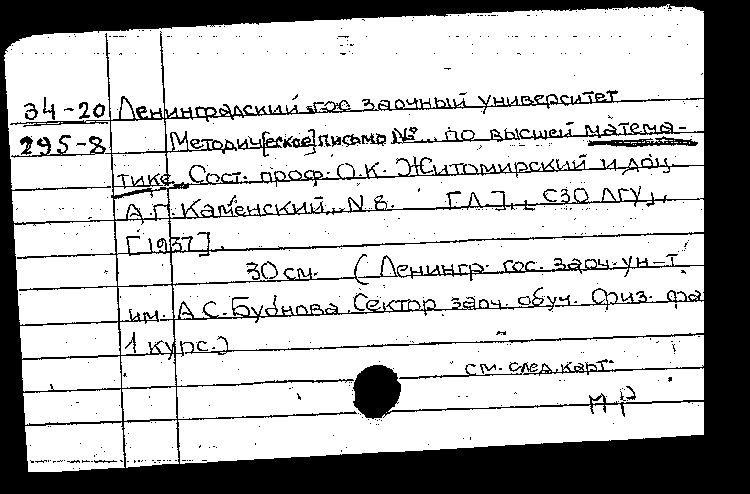 34-20 Ленинградский гос заочный университет
295-8 Методич[еское] письмо № .. по высшей матема-
тике. Сост. проф. О.К. Житомирский и доц.
А.П. Каменский.. N 8. [Л.], СЗО ЛГУ,
[1937].
30 см. (Ленингр. гос. заоч. ун-т
им. А.С. Бубнова. Сектор заоч. обуч. Физ. фа
1 курс.)
см. след. карт.
МР